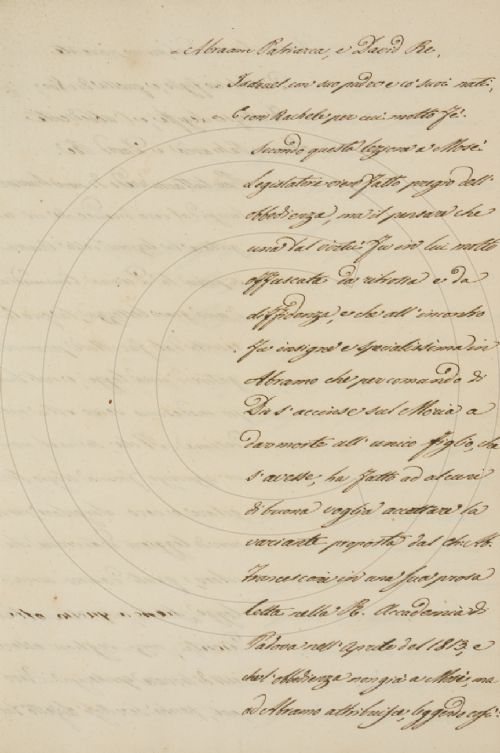 Abraam Patriarca, e David Re,
Isdrael con suo padre e co' suoi nati,
E con Rachele per cui molto fe'.
Secondo questa lezione a Mosè
Legislatore era fatto pregio dell'
obbedienza, ma il pensare che
una tal virtù fu in lui molto
offuscata da ribotta e da
diffidenza, e che all' incontro
fu insigne e specialissima in
Abramo che per comando di
Dio s' accinse sul Moria a
dar morte all' unico figlio, che
s' avesse, ha fatto ad alcuni
di buona voglia accettare la
variante proposta dal Ch. Ab.
Francesconi in una sua prosa
letta nella R. Accademia di
Padova nell' Aprile del 1813, e
che l' obbedienza non già a Mosè, ma
ad Abramo attribuisce, leggendo così: